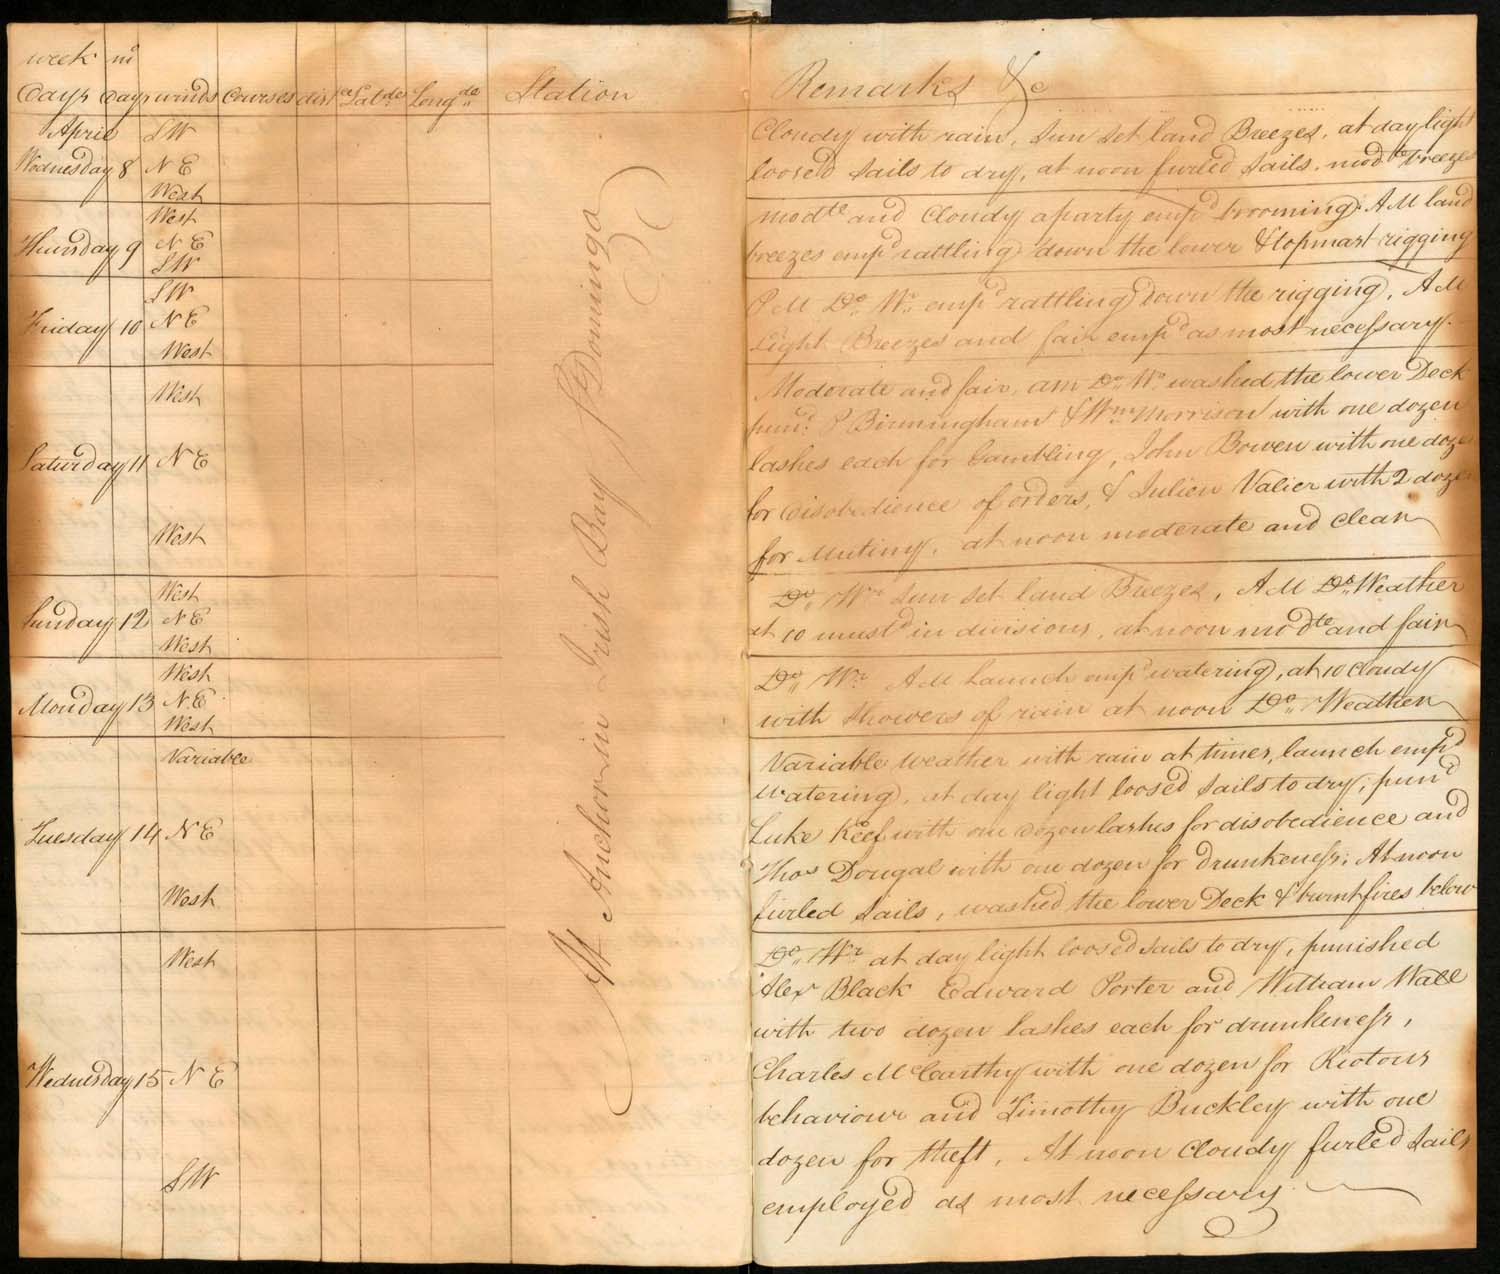 week
m
Days Days winds Courses dist ce Latde Longde Station
Remarks &c
April SW
Wednesday 8 N E
West
Cloudy with rain, Sun set land Breezes, at day light
loosed Sails to dry, at noon furled Sails. modte breezes
West
Thursday 9 N E
SW
modte and Cloudy a party empd brooming AM land
breezes empd rattling down the lower & topmast rigging
SW
Friday 10 N E
West
PM Do Wr empd rattling down the rigging, AM
Light Breezes and fair empd as most necessary.
West
Saturday 11 N E
West
Moderate and fair, am Do Wr washed the lower Deck
pund P Birmingham & Wm Morrison with one dozen
lashes each for Gambling, John Bowen with one dozen
for disobedience of orders, & Julien Valier with 2 dozen
for Mutiny. at noon moderate and clear
West
Sunday 12 N E
West
Do Wr Sun set land Breezes, AM Do Weather
at 10 mustd in divisions, at noon modte and fair
West
Monday 13 N.E
West
Do Wr AM Launch empd watering, at 10 cloudy
with Showers of rain at noon Do Weather
Variable
Tuesday 14 N E
West
Variable weather with rain at times, launch empd
watering, at day light loosed Sails to dry, pund
Luke Keef with one dozen lashes for disobedience and
Thos Dougal with one dozen for drunkeness. At noon
furled Sails, washed the lower Deck & burnt fires below
West
Wednesday 15 N E
SW
Do Wr at day light loosed Sails to dry, punished
Alexr Black Edward Porter and William Wall
with two dozen lashes each for drunkeness,
Charles McCarthy with one dozen for Riotous
behaviour and Timothy Buckley with one
dozen for theft. At noon Cloudy furled Sails
employed as most necessary
At Anchor in Irish Bay St Domingo